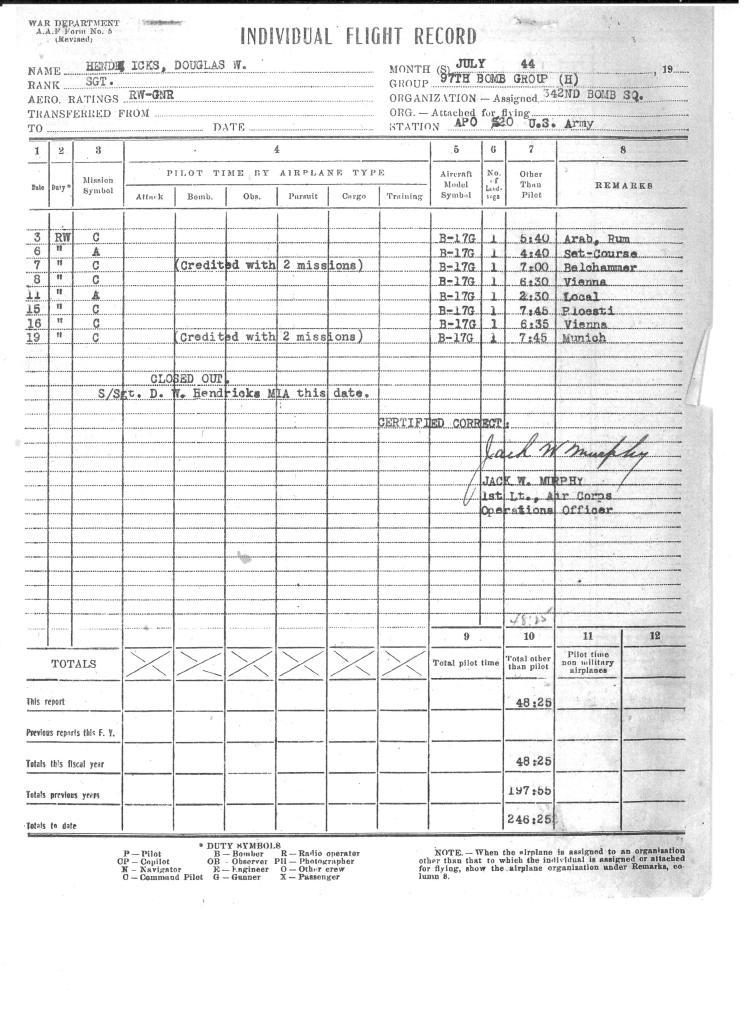 WAR DEPARTMENT
A.A.F Form No. 5
(Revised)
INDIVIDUAL FLIGHT RECORD
NAME HENDRICKS, DOUGLAS W.
MONTH (S) JULY 44, 19
RANK SGT.
GROUP 97TH BOMB GROUP (H)
AERO. RATINGS RW-GNR
ORGANIZATION — Assigned 342ND BOMB SQ.
TRANSFERRED FROM
ORG. — Attached for flying
TO DATE
STATION APO 520 U.S. Army
1 2 3 4 5 6 7 8
Date Duty* Mission Symbol PILOT TIME BY AIRPLANE TYPE Aircraft Model Symbol No. of Landings Other Than Pilot REMARKS
Attack Bomb. Obs. Pursuit Cargo Training
3 RW C B-17G 1 5:40 Arab, Rum
6 " A B-17G 1 4:40 Set-Course
7 " C (Credited with 2 missions) B-17G 1 7:00 Belchammer
8 " C B-17G 1 6:30 Vienna
11 " A B-17G 1 2:30 Local
15 " C B-17G 1 7:45 Ploesti
16 " C B-17G 1 6:35 Vienna
19 " C (Credited with 2 missions) B-17G 1 7:45 Munich
CLOSED OUT.
S/Sgt. D. W. Hendricks MIA this date.
CERTIFIED CORRECT:
Jack W Murphy
JACK W. MURPHY
1st Lt., Air Corps
Operations Officer
48:25
9 10 11 12
TOTALS Total pilot time Total other than pilot Pilot time non military airplanes
This report 48:25
Previous reports this F. Y.
Totals this fiscal year 48:25
Totals previous years 197:55
Totals to date 246:25
* DUTY SYMBOLS
P — Pilot B — Bomber R — Radio operator
CP — Copilot OB — Observer PH — Photographer
N — Navigator E — Engineer O — Other crew
C — Command Pilot G — Gunner X — Passenger
NOTE. — When the airplane is assigned to an organization
other than that to which the individual is assigned or attached
for flying, show the airplane organization under Remarks, co-
lumn 8.